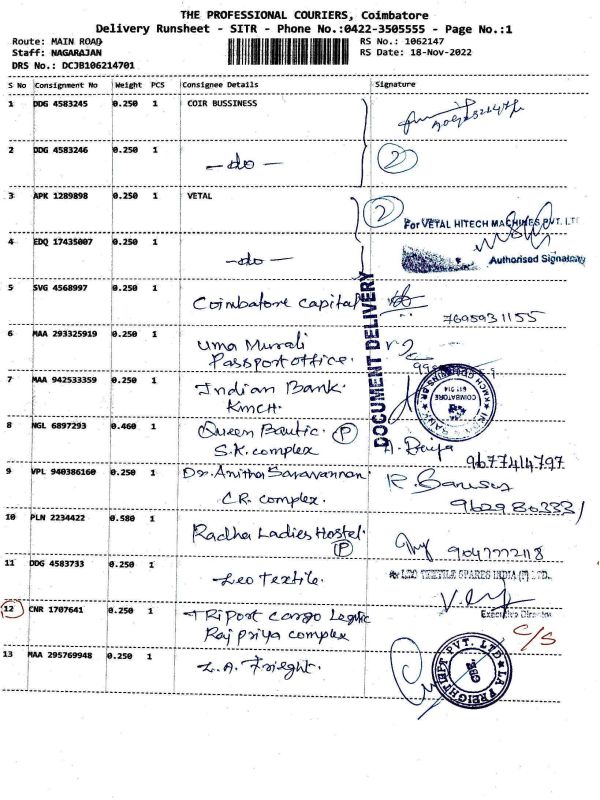 THE PROFESSIONAL COURIERS, Coimbatore
Delivery Runsheet - SITR - Phone No.:0422-3505555 - Page No.:1
Route: MAIN ROAD
RS No.: 1062147
Staff: NAGARAJAN
RS Date: 18-Nov-2022
DRS No.: DCJB106214701
S No Consignment No Weight PCS Consignee Details Signature
1 DDG 4583245 0.250 1 COIR BUSSINESS
2 DDG 4583246 0.250 1 — do — 2
3 APK 1289898 0.250 1 VETAL 2
For VETAL HITECH MACHINES PVT. LTD
4 EDQ 17435007 0.250 1 — do —
Authorised Signatory
DOCUMENT DELIVERY
5 SVG 4568997 0.250 1 Coimbatore capital
7695931155
6 MAA 293325919 0.250 1 Uma Murali
Passport office.
7 MAA 942533359 0.250 1 Indian Bank.
KMCH.
COIMBATORE
641 014
8 NGL 6897293 0.460 1 Queen Bautic. P
S.K. complex
9677414797
9 VPL 940386160 0.250 1 Dr. Anitha Saravannan.
C.R. complex.
9629803331
10 PLN 2234422 0.580 1 Radha Ladies Hostel.
P
9047772118
11 DDG 4583733 0.250 1 Leo Textile.
for LEO TEXTILE SPARES INDIA (P) LTD.,
Executive Director
12 CNR 1707641 0.250 1 TRiport cargo Legistic
Raj priya complex
C/S
13 MAA 295769948 0.250 1 L.A. Frieght.
LA FREIGHTLIFT PVT. LTD